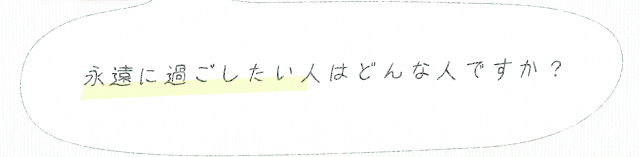 永遠に過ごしたい人はどんな人ですか？